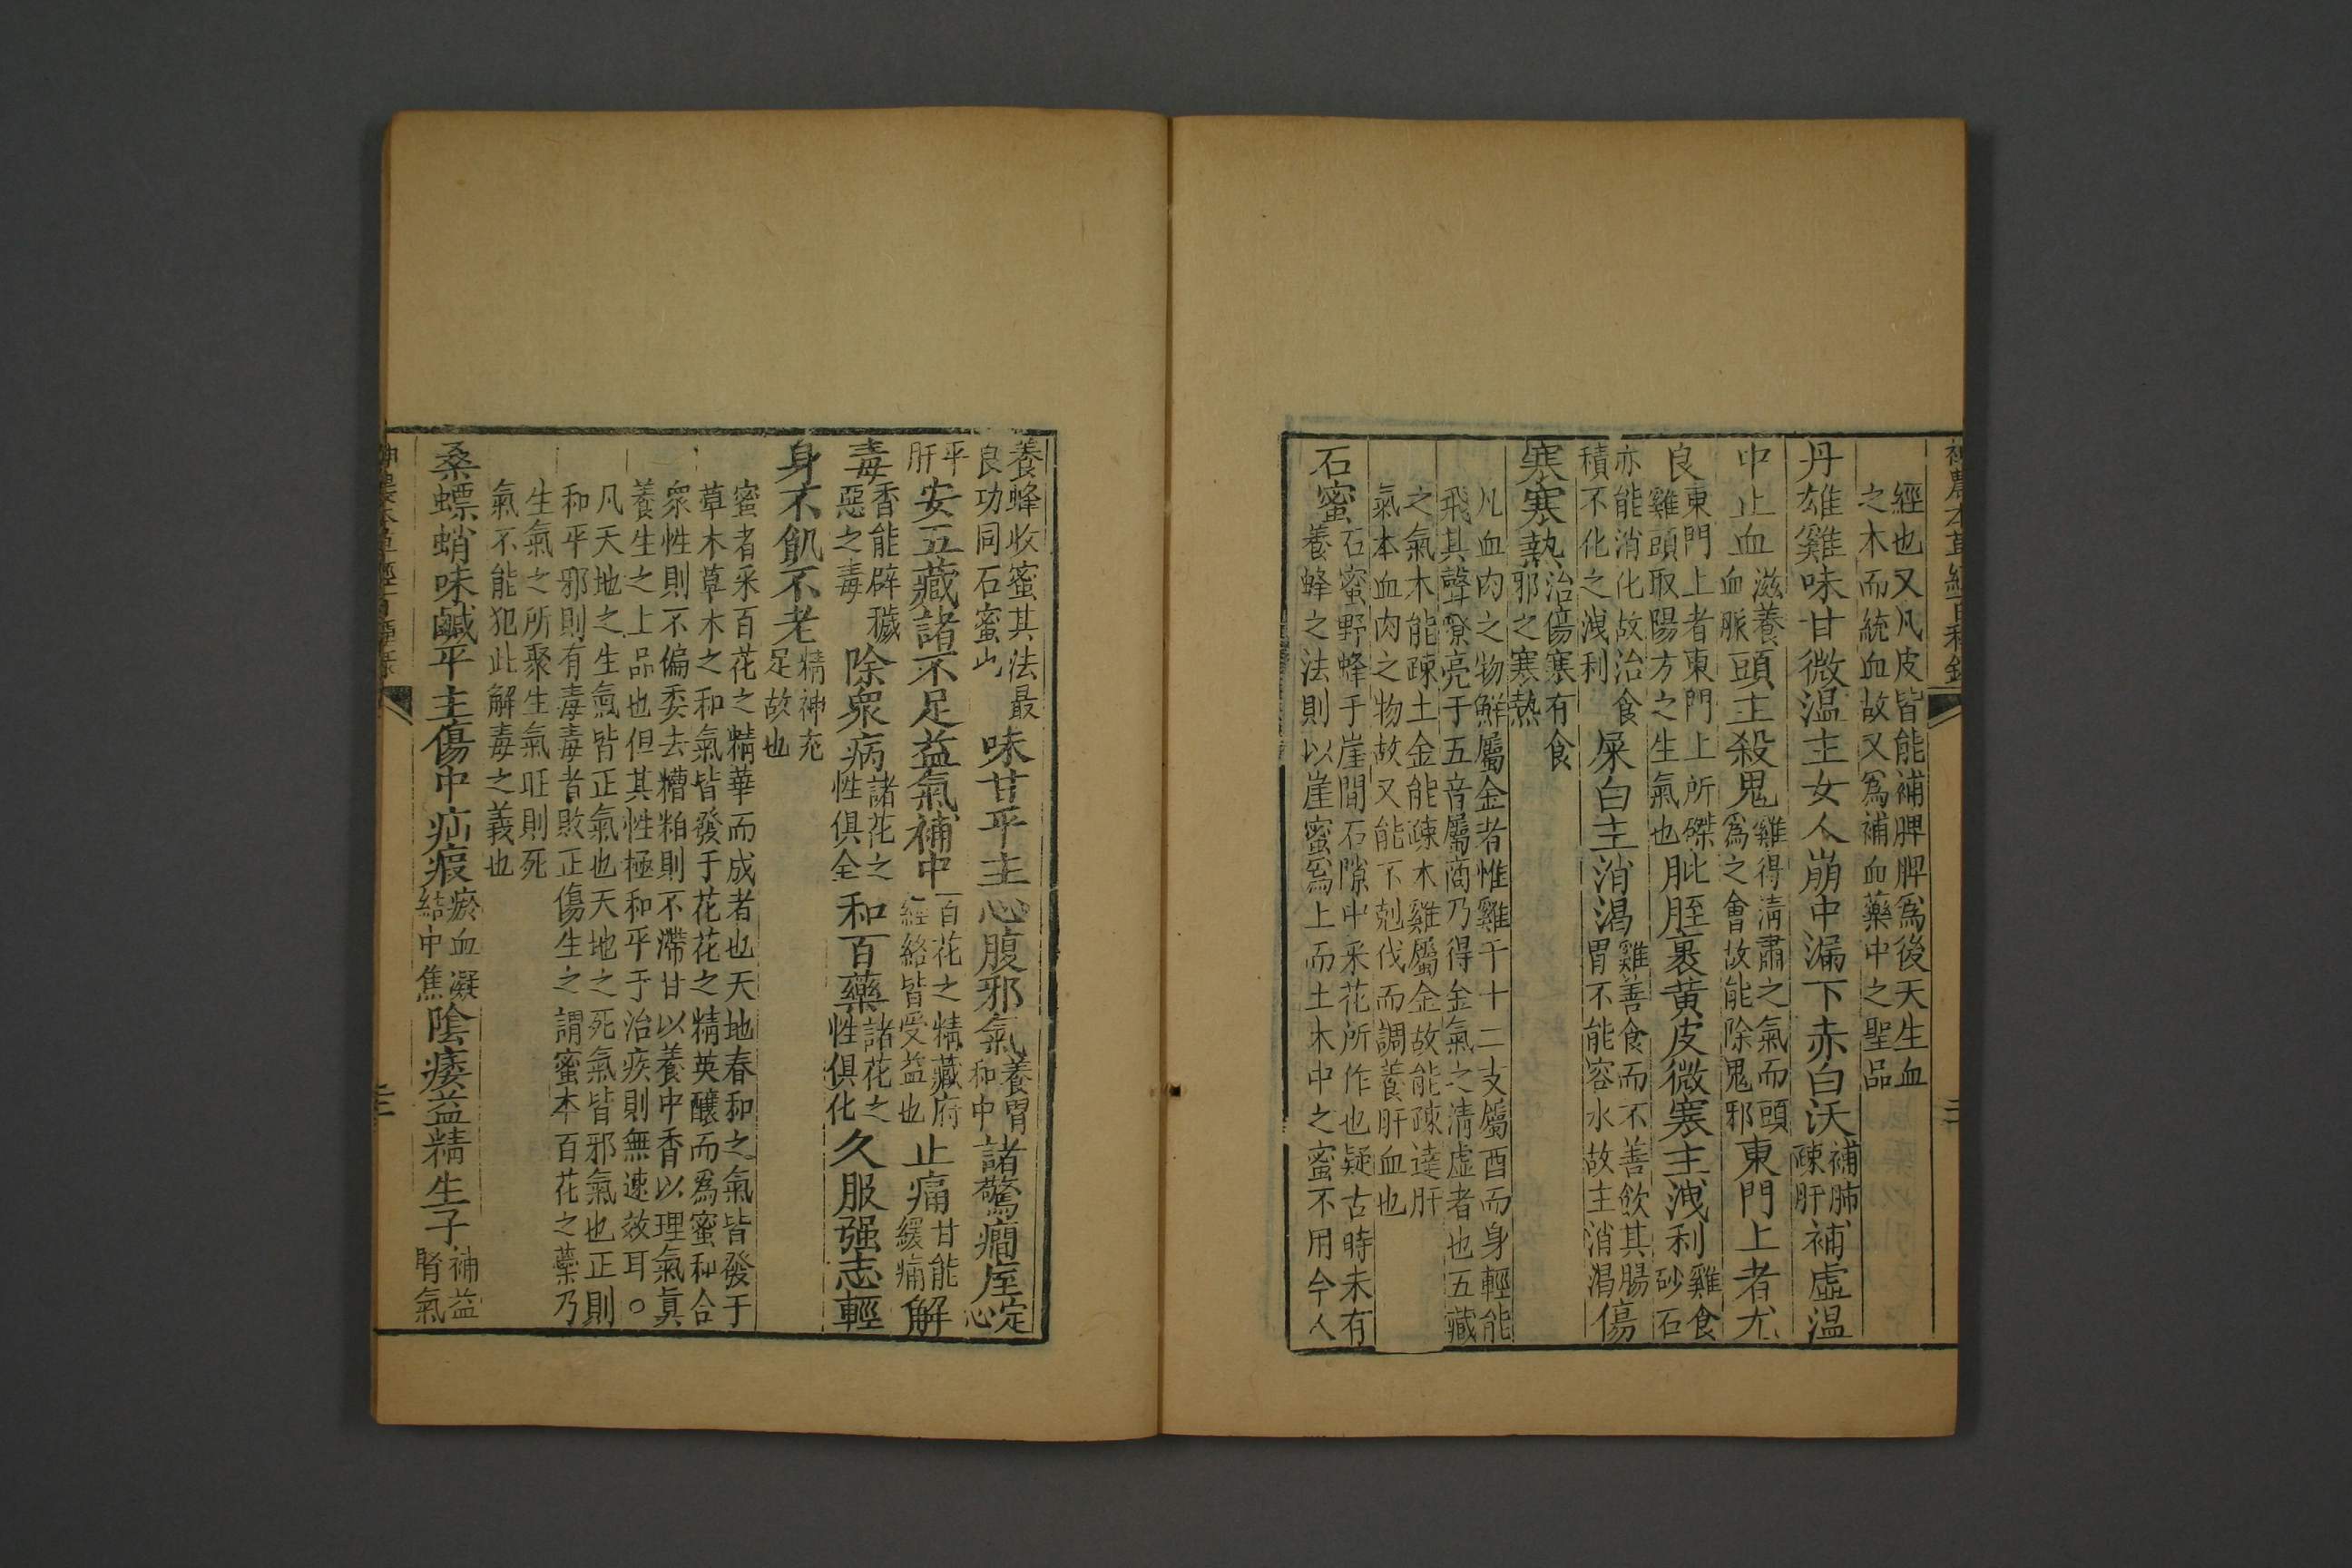 神農本草經百種錄
經也又凡皮皆能補脾脾爲後天生血
之木而統血故又爲補血藥中之聖品
丹雄雞味甘微温主女人崩中漏下赤白沃補肺疎肝補虛温
中止血滋養血脈頭主殺鬼雞得清肅之氣而頭爲之會故能除鬼邪東門上者尤
良東門上者東門上所磔雞頭取陽方之生氣也肶胵裹黄皮微寒主洩利雞食砂石
亦能消化故治食積不化之洩利屎白主消渴雞善食而不善飲其腸胃不能容水故主消渴傷
寒寒熱治傷寒有食邪之寒熱
凡血肉之物鮮屬金者惟雞于十二支屬酉而身輕能
飛其聲嘹亮于五音屬商乃得金氣之清虛者也五藏
之氣木能疎土金能疎木雞屬金故能疎達肝
氣本血肉之物故又能不剋伐而調養肝血也
石蜜石蜜野蜂于崖間石隙中采花所作也疑古時未有養蜂之法則以崖蜜爲上而土木中之蜜不用今人
養蜂收蜜其法最良功同石蜜此味甘平主心腹邪氣養胃和中諸驚癎痓定心
平肝安五藏諸不足益氣補中百花之精藏府經絡皆受益也止痛甘能緩痛解
毒香能辟穢惡之毒除衆病諸花之性俱全和百藥諸花之性俱化久服强志輕
身不飢不老精神充足故也
蜜者采百花之精華而成者也天地春和之氣皆發于
草木草木之和氣皆發于花花之精英釀而爲蜜和合
衆性則不偏委去糟粕則不滯甘以養中香以理氣真
養生之上品也但其性極和平于治疾則無速效耳○
凡天地之生氣皆正氣也天地之死氣皆邪氣也正則
和平邪則有毒毒者敗正傷生之謂蜜本百花之蘂乃
生氣之所聚生氣旺則死
氣不能犯此解毒之義也
桑螵蛸味鹹平主傷中疝瘕瘀血凝結中焦陰痿益精生子補益腎氣